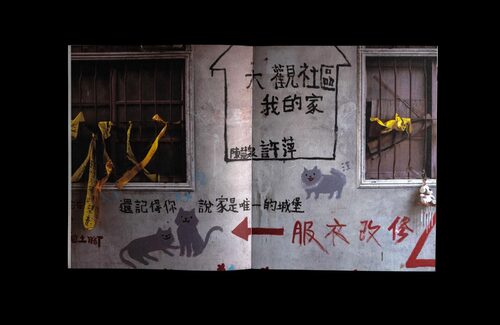 大觀社區
我的家
許萍
還記得你 說家是唯一的城堡
服衣改修